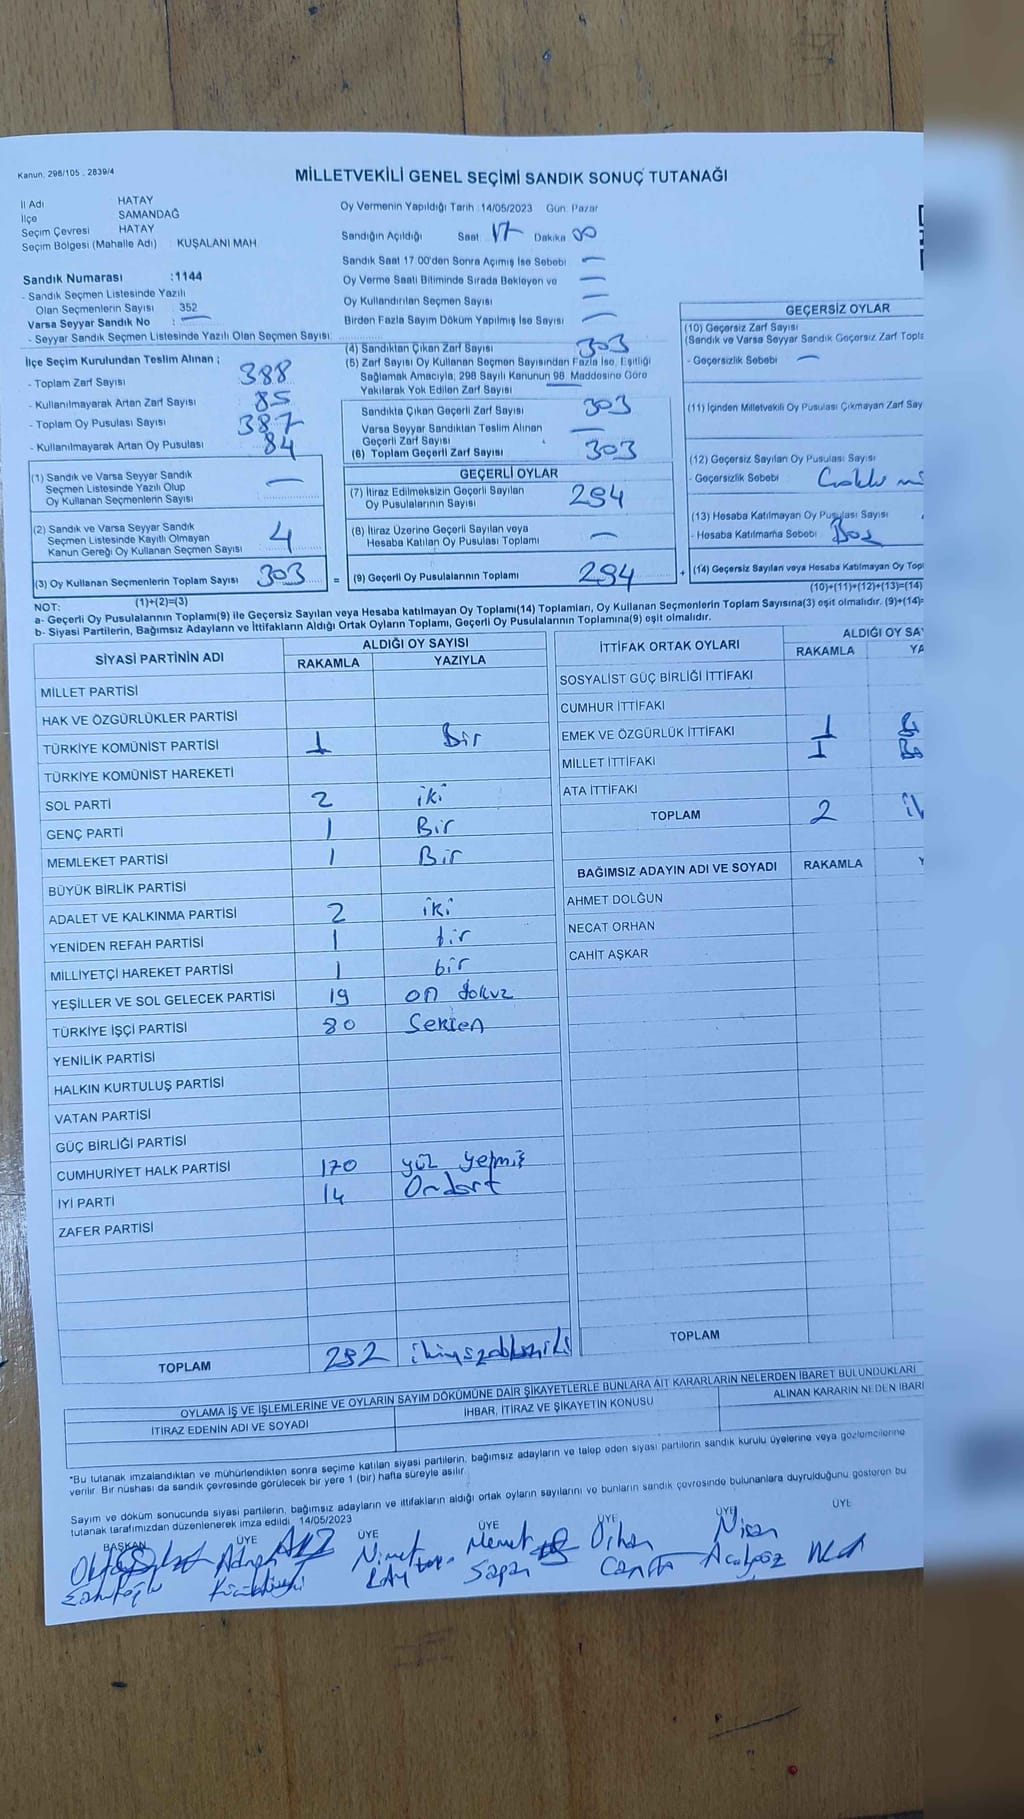 Kanun, 298/105 , 2839/4
MİLLETVEKİLİ GENEL SEÇİMİ SANDIK SONUÇ TUTANAĞI
İl Adı HATAY
İlçe SAMANDAĞ
Seçim Çevresi HATAY
Seçim Bölgesi (Mahalle Adı) KUŞALANI MAH
Oy Vermenin Yapıldığı Tarih 14/05/2023 Gün Pazar
Sandığın Açıldığı Saat 17 Dakika 00
Sandık Saat 17.00'den Sonra Açımış İse Sebebi —
Oy Verme Saati Bitiminde Sırada Bekleyen ve —
Oy Kullandırılan Seçmen Sayısı —
Birden Fazla Sayım Döküm Yapılmış İse Sayısı —
Sandık Numarası :1144
- Sandık Seçmen Listesinde Yazılı
Olan Seçmenlerin Sayısı : 352
Varsa Seyyar Sandık No : —
- Seyyar Sandık Seçmen Listesinde Yazılı Olan Seçmen Sayısı:
İlçe Seçim Kurulundan Teslim Alınan ;
- Toplam Zarf Sayısı 388
- Kullanılmayarak Artan Zarf Sayısı 85
- Toplam Oy Pusulası Sayısı 387
- Kullanılmayarak Artan Oy Pusulası 84
(1) Sandık ve Varsa Seyyar Sandık
Seçmen Listesinde Yazılı Olup
Oy Kullanan Seçmenlerin Sayısı —
(2) Sandık ve Varsa Seyyar Sandık
Seçmen Listesinde Kayıtlı Olmayan
Kanun Gereği Oy Kullanan Seçmen Sayısı 4
(3) Oy Kullanan Seçmenlerin Toplam Sayısı 303
(1)+(2)=(3)
(4) Sandıktan Çıkan Zarf Sayısı 303
(5) Zarf Sayısı Oy Kullanan Seçmen Sayısından Fazla İse, Eşitliği
Sağlamak Amacıyla, 298 Sayılı Kanunun 98. Maddesine Göre
Yakılarak Yok Edilen Zarf Sayısı —
Sandıkta Çıkan Geçerli Zarf Sayısı 303
Varsa Seyyar Sandıktan Teslim Alınan
Geçerli Zarf Sayısı —
(6) Toplam Geçerli Zarf Sayısı 303
GEÇERLİ OYLAR
(7) İtiraz Edilmeksizin Geçerli Sayılan
Oy Pusulalarının Sayısı 294
(8) İtiraz Üzerine Geçerli Sayılan veya
Hesaba Katılan Oy Pusulası Toplamı —
= (9) Geçerli Oy Pusulalarının Toplamı 294
GEÇERSİZ OYLAR
(10) Geçersiz Zarf Sayısı
(Sandık ve Varsa Seyyar Sandık Geçersiz Zarf Topla
- Geçersizlik Sebebi —
(11) İçinden Milletvekili Oy Pusulası Çıkmayan Zarf Say
(12) Geçersiz Sayılan Oy Pusulası Sayısı
- Geçersizlik Sebebi
(13) Hesaba Katılmayan Oy Pusulası Sayısı
- Hesaba Katılmama Sebebi Boş
+ (14) Geçersiz Sayılan veya Hesaba Katılmayan Oy Top
(10)+(11)+(12)+(13)=(14)
NOT:
a- Geçerli Oy Pusulalarının Toplamı(9) ile Geçersiz Sayılan veya Hesaba katılmayan Oy Toplamı(14) Toplamları, Oy Kullanan Seçmenlerin Toplam Sayısına(3) eşit olmalıdır. (9)+(14)=
b- Siyasi Partilerin, Bağımsız Adayların ve İttifakların Aldığı Ortak Oyların Toplamı, Geçerli Oy Pusulalarının Toplamına(9) eşit olmalıdır.
SİYASİ PARTİNİN ADI ALDIĞI OY SAYISI
RAKAMLA YAZIYLA
MİLLET PARTİSİ
HAK VE ÖZGÜRLÜKLER PARTİSİ
TÜRKİYE KOMÜNİST PARTİSİ 1 Bir
TÜRKİYE KOMÜNİST HAREKETİ
SOL PARTİ 2 iki
GENÇ PARTİ 1 Bir
MEMLEKET PARTİSİ 1 Bir
BÜYÜK BİRLİK PARTİSİ
ADALET VE KALKINMA PARTİSİ 2 iki
YENİDEN REFAH PARTİSİ 1 bir
MİLLİYETÇİ HAREKET PARTİSİ 1 bir
YEŞİLLER VE SOL GELECEK PARTİSİ 19 on dokuz
TÜRKİYE İŞÇİ PARTİSİ 80 Seksen
YENİLİK PARTİSİ
HALKIN KURTULUŞ PARTİSİ
VATAN PARTİSİ
GÜÇ BİRLİĞİ PARTİSİ
CUMHURİYET HALK PARTİSİ 170 yüz yetmiş
İYİ PARTİ 14 Ondört
ZAFER PARTİSİ
TOPLAM 292
İTTİFAK ORTAK OYLARI ALDIĞI OY SA
RAKAMLA YA
SOSYALİST GÜÇ BİRLİĞİ İTTİFAKI
CUMHUR İTTİFAKI
EMEK VE ÖZGÜRLÜK İTTİFAKI 1
MİLLET İTTİFAKI 1
ATA İTTİFAKI
TOPLAM 2
BAĞIMSIZ ADAYIN ADI VE SOYADI RAKAMLA Y
AHMET DOLĞUN
NECAT ORHAN
CAHİT AŞKAR
TOPLAM
OYLAMA İŞ VE İŞLEMLERİNE VE OYLARIN SAYIM DÖKÜMÜNE DAİR ŞİKAYETLERLE BUNLARA AİT KARARLARIN NELERDEN İBARET BULUNDUKLARI
İTİRAZ EDENİN ADI VE SOYADI İHBAR, İTİRAZ VE ŞİKAYETİN KONUSU ALINAN KARARIN NEDEN İBAR
*Bu tutanak imzalandıktan ve mühürlendikten sonra seçime katılan siyasi partilerin, bağımsız adayların ve talep eden siyasi partilerin sandık kurulu üyelerine veya gözlemcilerine
verilir. Bir nüshası da sandık çevresinde görülecek bir yere 1 (bir) hafta süreyle asılır.
Sayım ve döküm sonucunda siyasi partilerin, bağımsız adayların ve ittifakların aldığı ortak oyların sayılarını ve bunların sandık çevresinde bulunanlara duyrulduğunu gösteren bu
tutanak tarafımızdan düzenlenerek imza edildi. 14/05/2023
BAŞKAN ÜYE ÜYE ÜYE ÜYE ÜYE
Adnan Nimet Memet Orhan Nisa